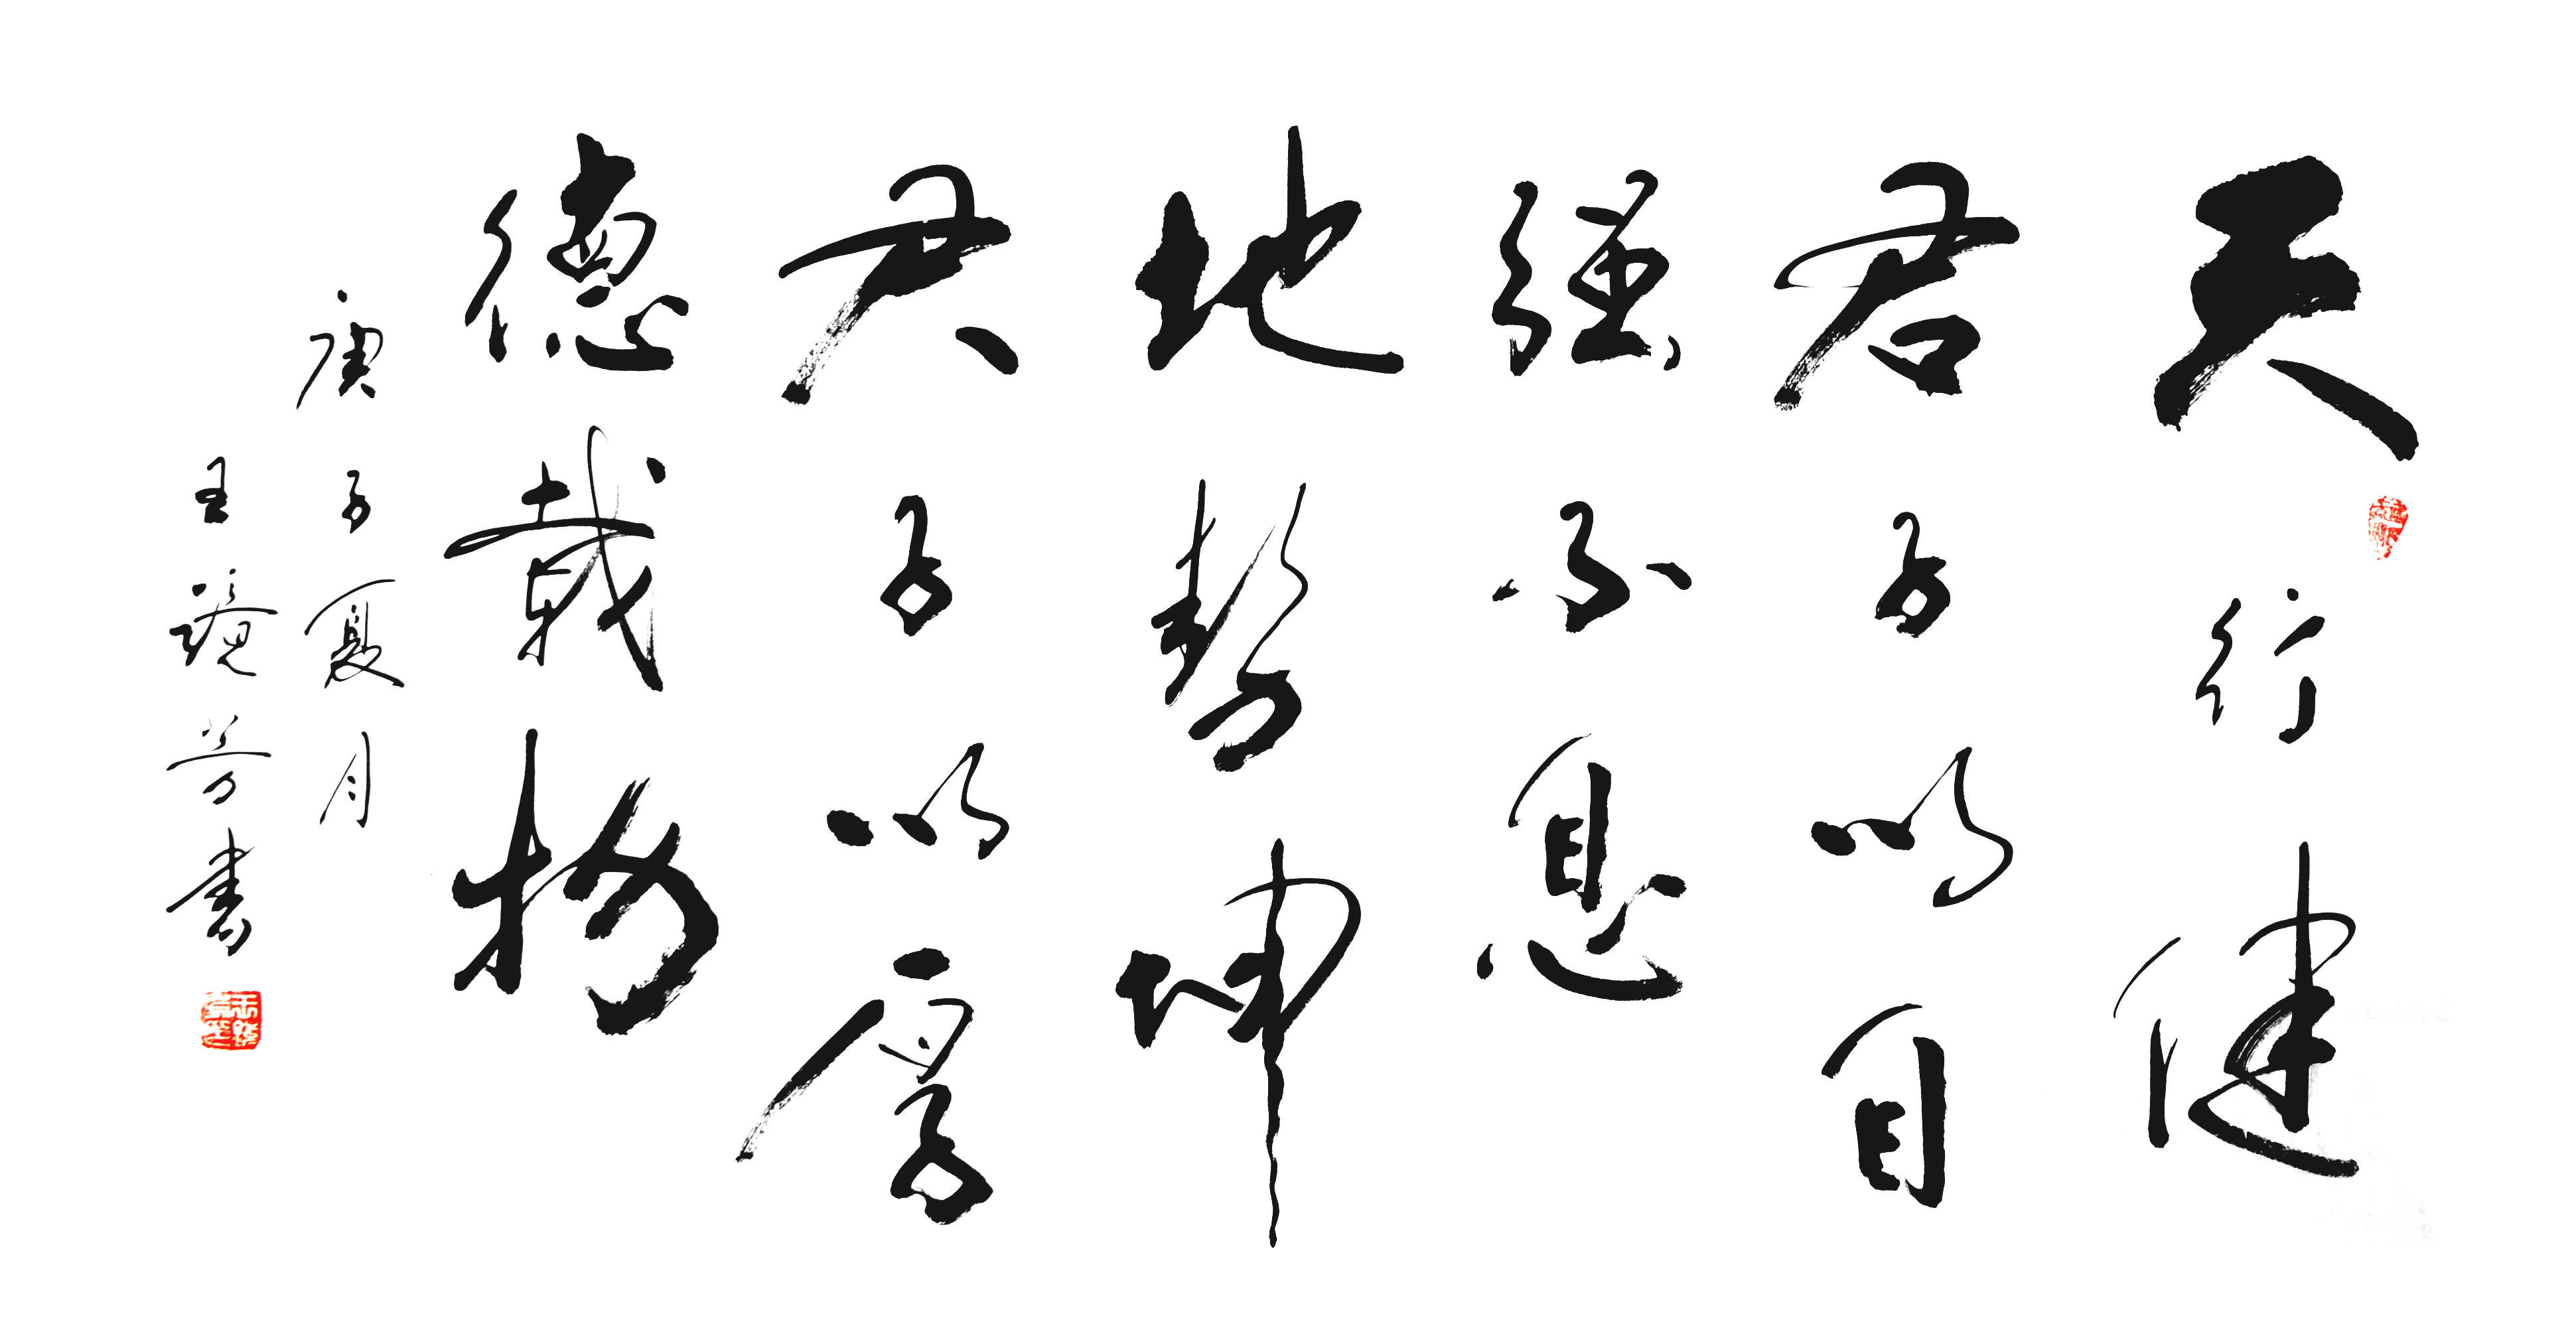 天行健
君子以自
强不息
地势坤
君子以厚
德载物
庚子夏月
王镜芳书